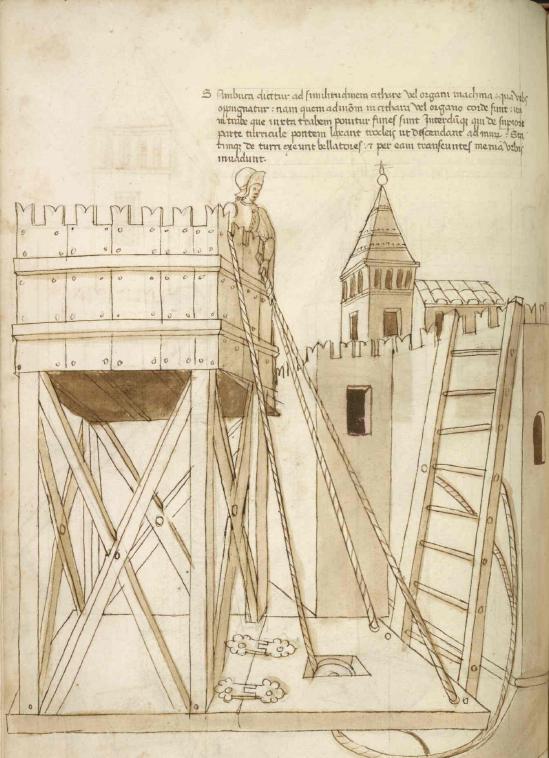 Sambuca dicitur ad similitudinem cithare vel organi machina : qua urbs
oppugnatur : nam quem admõm in cithara vel organo corde sunt : ita
in trabe que iuxta trabem ponitur funes sunt Interdũq; qui de superiore
parte turricule pontem laxant trocleis ut descendant ad murũ : Sta
timq; de turri exeunt bellatores : & per eam transeuntes menia urbis
invadunt.